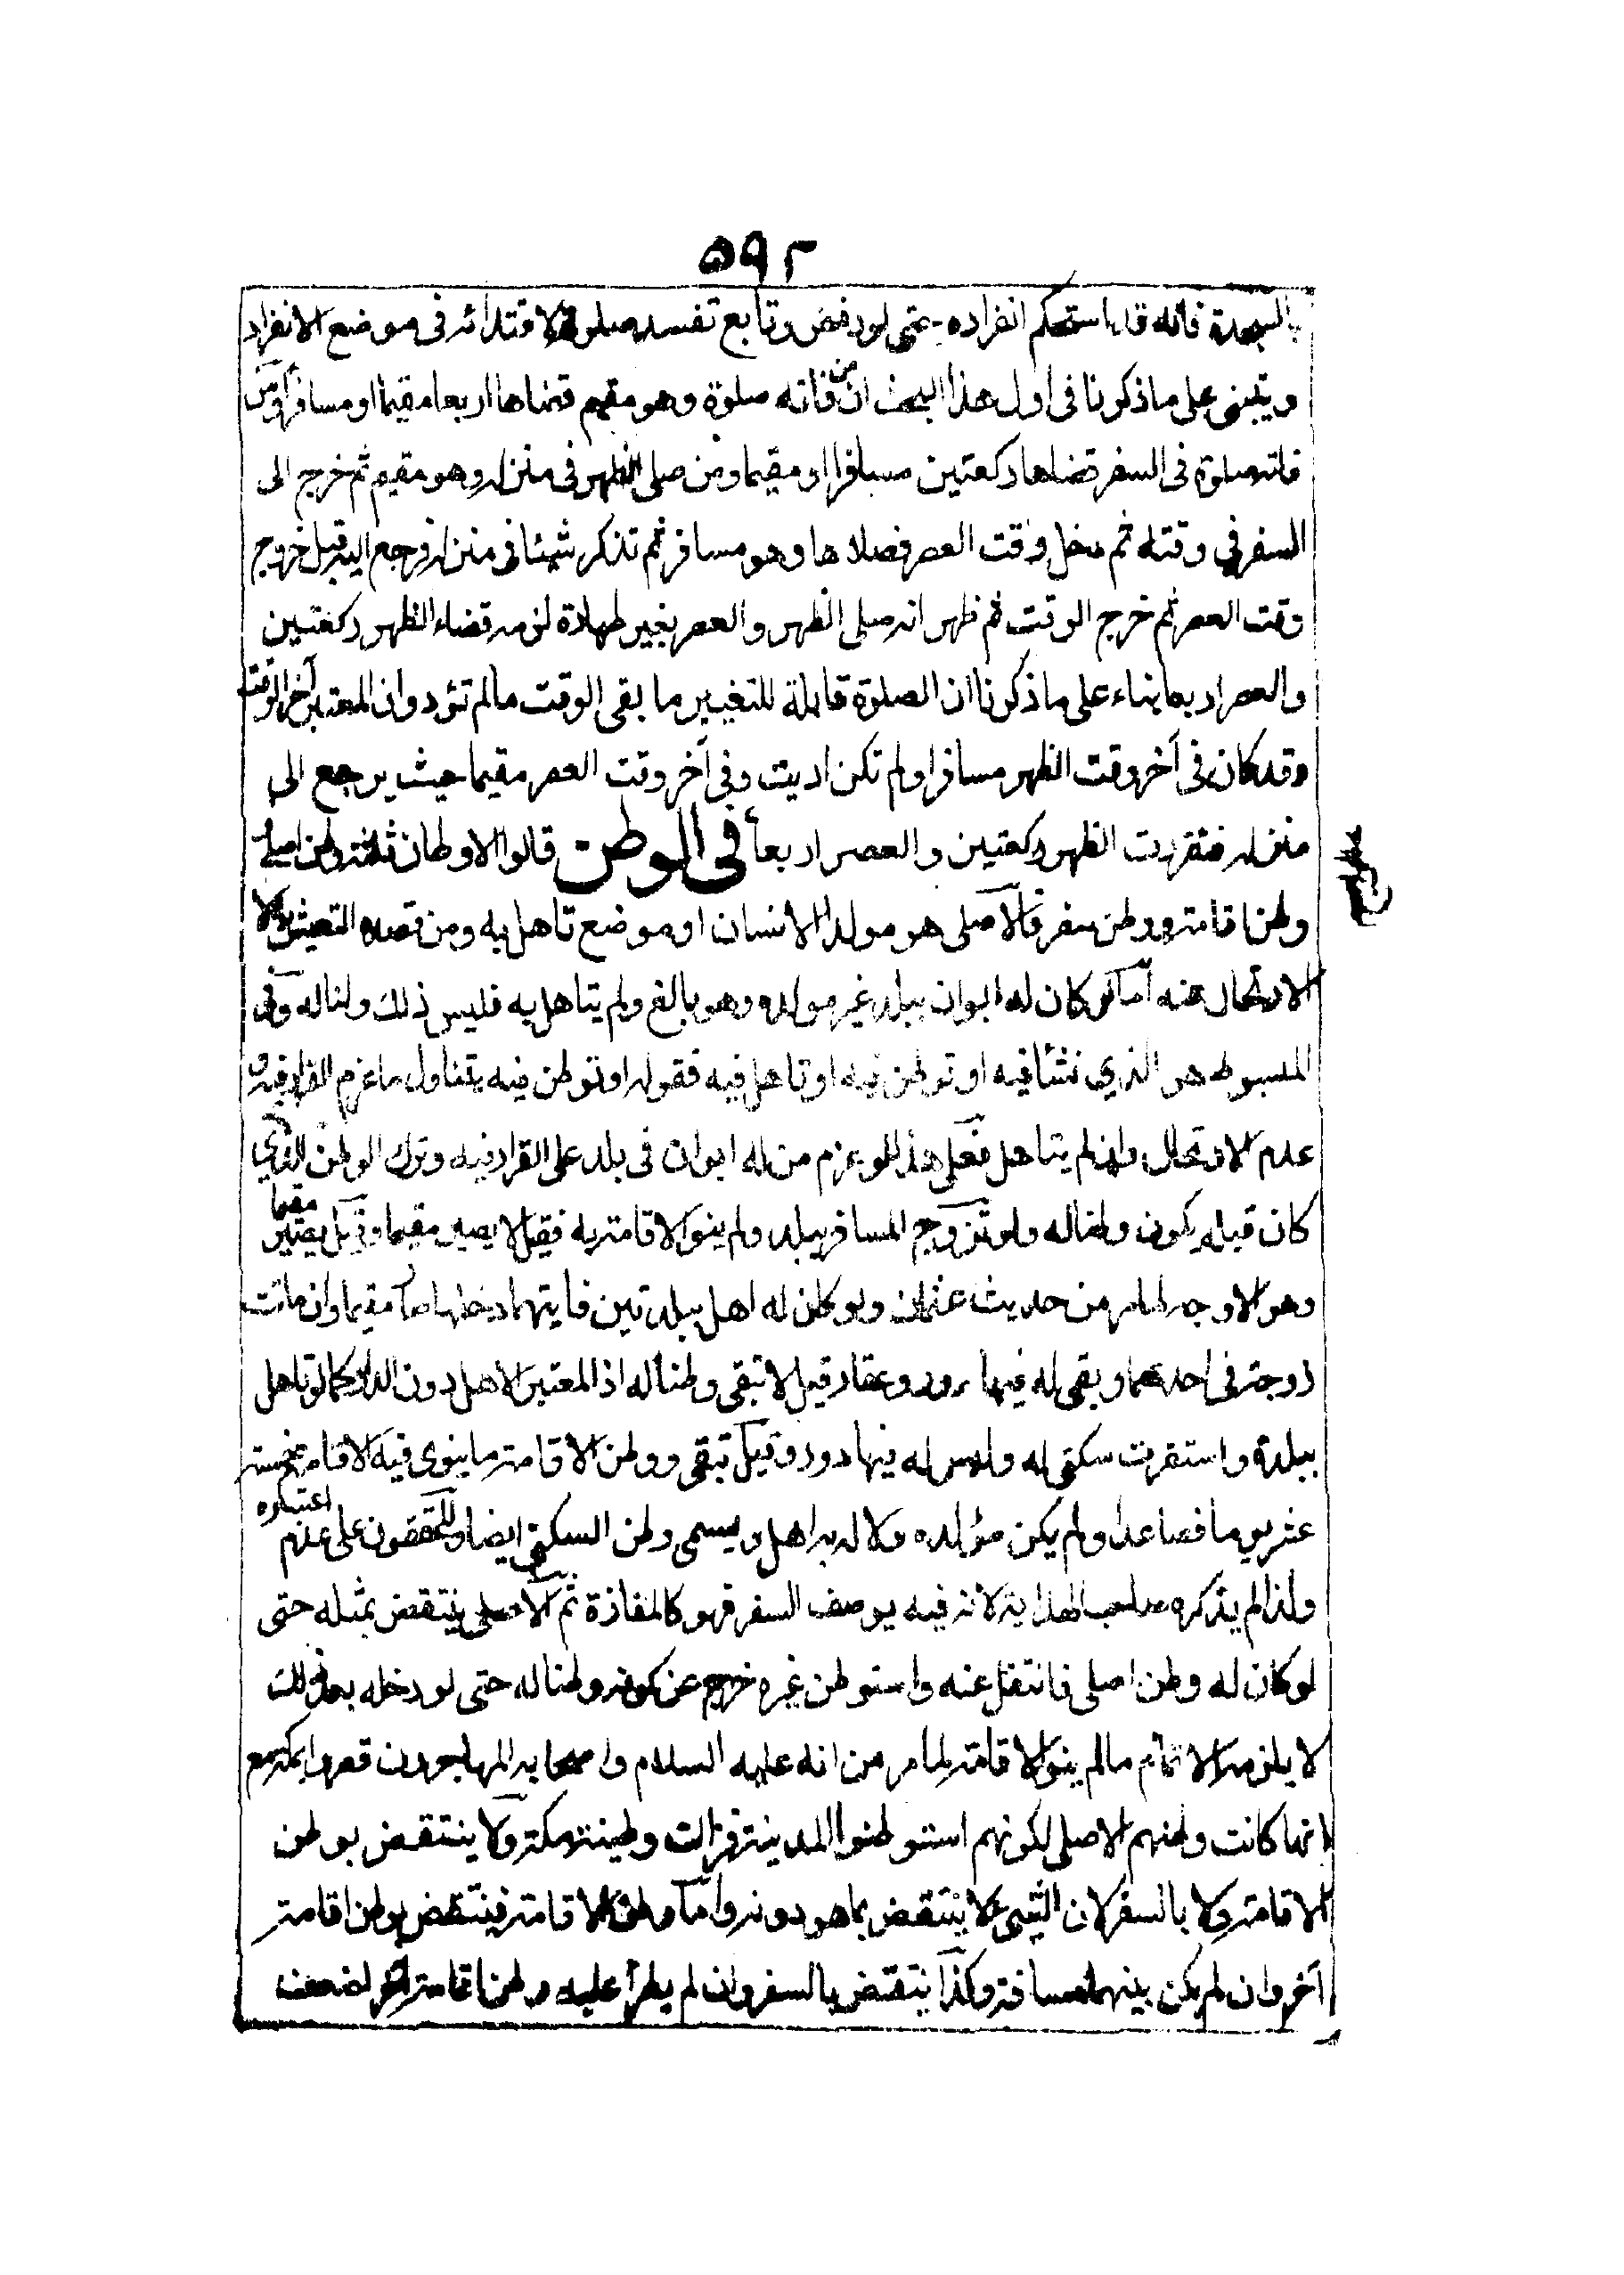 ٥٩٢
بالسجدة فانه قد استحكم انفراده حتى لو رفض وتابع تفسد صلوته لاقتدائه فى موضع الانفراد
ويبتنى على ما ذكرنا فى اول هذا البحث ان من فاته صلوة وهو مقيم قضاها اربعا مقيما او مسافرا ومن
فاته صلوة فى السفر قضاها ركعتين مسافرا او مقيما ومن صلى الظهر فى منزله وهو مقيم ثم خرج الى
السفر فى وقته ثم دخل وقت العصر فصلاها وهو مسافر ثم تذكر شيئا فى منزله فرجع اليه قبل خروج
وقت العصر ثم خرج الوقت ثم ظهر انه صلى الظهر والعصر بغير طهارة لزمه قضاء الظهر ركعتين
والعصر اربعا بناء على ما ذكرنا ان الصلوة قابلة للتغيير ما بقى الوقت ما لم تؤد وان المعتبر آخر الوقت
وقد كان فى آخر وقت الظهر مسافرا ولم تكن اديت وفى آخر وقت العصر مقيما حيث يرجع الى
منزله فتقررت الظهر ركعتين والعصر اربعا فى الوطن قالوا الاوطان ثلثة وطن اصلى
وطن اقامة ووطن سفر فالاصلى هو مولد الانسان او موضع تاهل به ومن قصده التعيش به لا
الارتحال عنه اما لو كان له ابوان ببلد غير مولده وهو بالغ ولم يتاهل به فليس ذلك وطنا له وفى
المبسوط هو الذي نشأ فيه او توطن فيه او تاهل فيه فقوله او توطن فيه يتناول ما عزم القرار فيه و
عدم الارتحال وان لم يتاهل فعلى هذا لو عزم من له ابوان فى بلد على القرار فيه وترك الوطن الذي
كان قبله يكون وطنا له ولو تزوج المسافر ببلد ولم ينو الاقامة به فقيل لا يصير مقيما وقيل يصير مقيما
وهو الاوجه لما مر من حديث عثمان ولو كان له اهل ببلدتين فايتهما دخلها صار مقيما وان ماتت
زوجته فى احدهما وبقى له فيها دور وعقار قيل لا تبقى وطنا له اذ المعتبر الاهل دون الدار كما لو تاهل
ببلدة واستقرت سكنى له وليس له فيها دور وقيل تبقى ووطن الاقامة ما ينوى فيه الاقامة خمسة
عشر يوما فصاعدا ولم يكن مولده ولا له به اهل ويسمى وطن السكنى ايضا والمحققون على عدم اعتباره
ولذا لم يذكره صاحب الهداية لانه فيه يوصف السفر فهو كالمفازة ثم الاصلى ينتقض بمثله حتى
لو كان له وطن اصلى فانتقل عنه واستوطن غيره خرج عن كونه وطنا له حتى لو دخله بعد ذلك
لا يلزمه الاتمام ما لم ينو الاقامة لما مر من انه عليه السلام واصحابه المهاجرون قصروا بمكة مع
انها كانت وطنهم الاصلى لكونهم استوطنوا المدينة فزالت وطنيته مكة ولا ينتقض بوطن
الاقامة ولا بالسفر لان الشئ لا ينتقض بما هو دونه واما وطن الاقامة فينتقض بوطن اقامة
آخر وان لم يكن بينهما مسافة وكذا ينتقض بالسفر وان لم يطرأ عليه وطن اقامة آخر لضعف